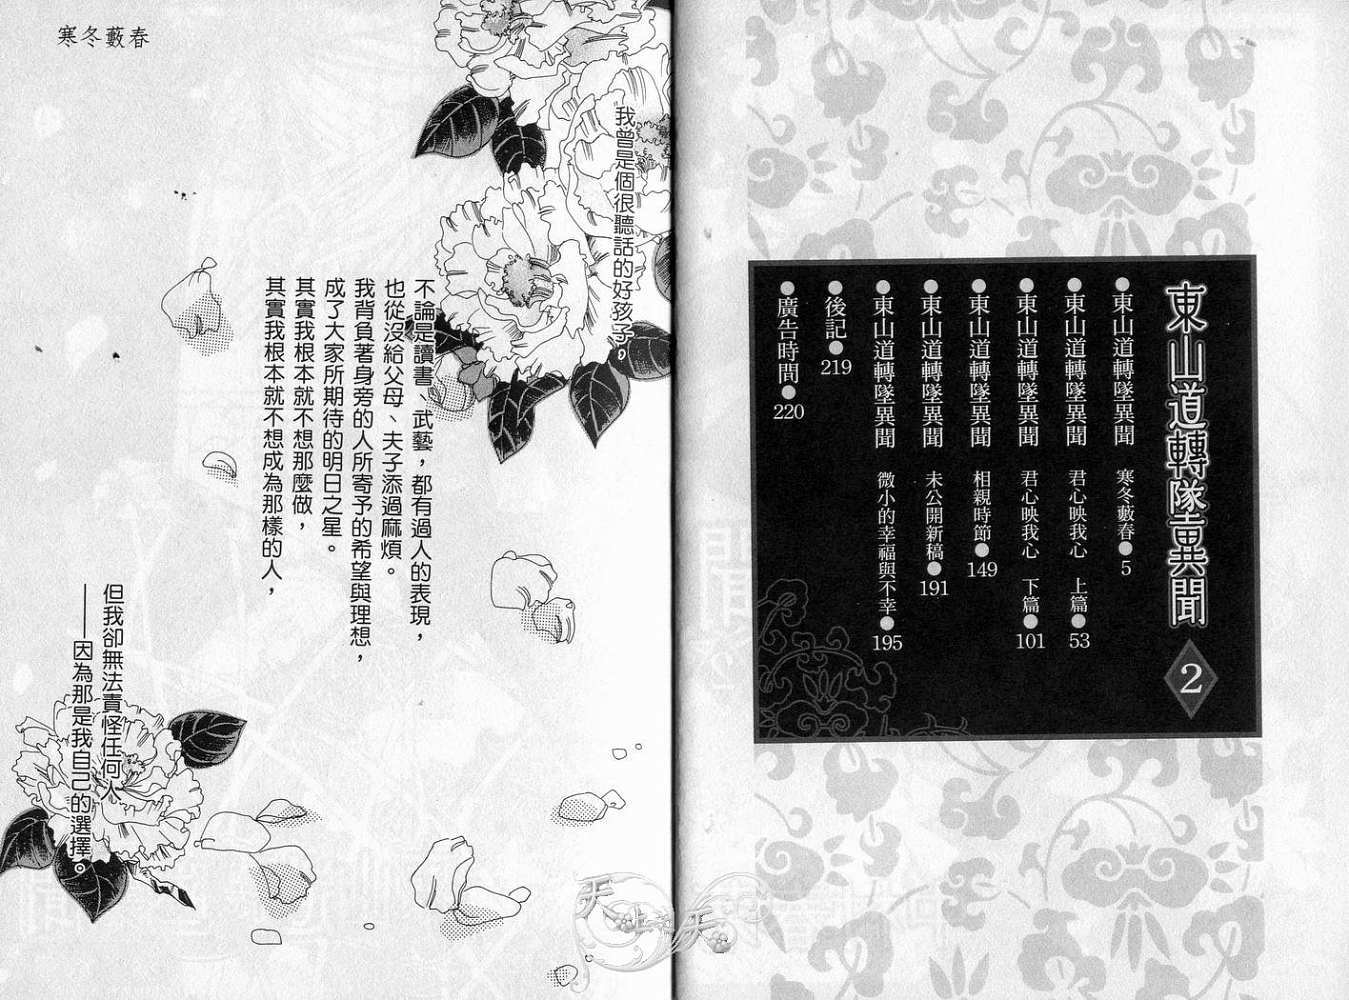 東山道轉墜異聞 2
●東山道轉墜異聞 寒冬藪春●5
●東山道轉墜異聞 君心映我心 上篇●53
●東山道轉墜異聞 君心映我心 下篇●101
●東山道轉墜異聞 相親時節●149
●東山道轉墜異聞 未公開新稿●191
●東山道轉墜異聞 微小的幸福與不幸●195
●後記●219
●廣告時間●220
寒冬藪春
我曾是個很聽話的好孩子。
不論是讀書、武藝，都有過人的表現，
也從沒給父母、夫子添過麻煩。
我背負著身旁的人所寄予的希望與理想，
成了大家所期待的明日之星。
其實我根本就不想那麼做，
其實我根本就不想成為那樣的人，
但我卻無法責怪任何人
——因為那是我自己的選擇。
天上天